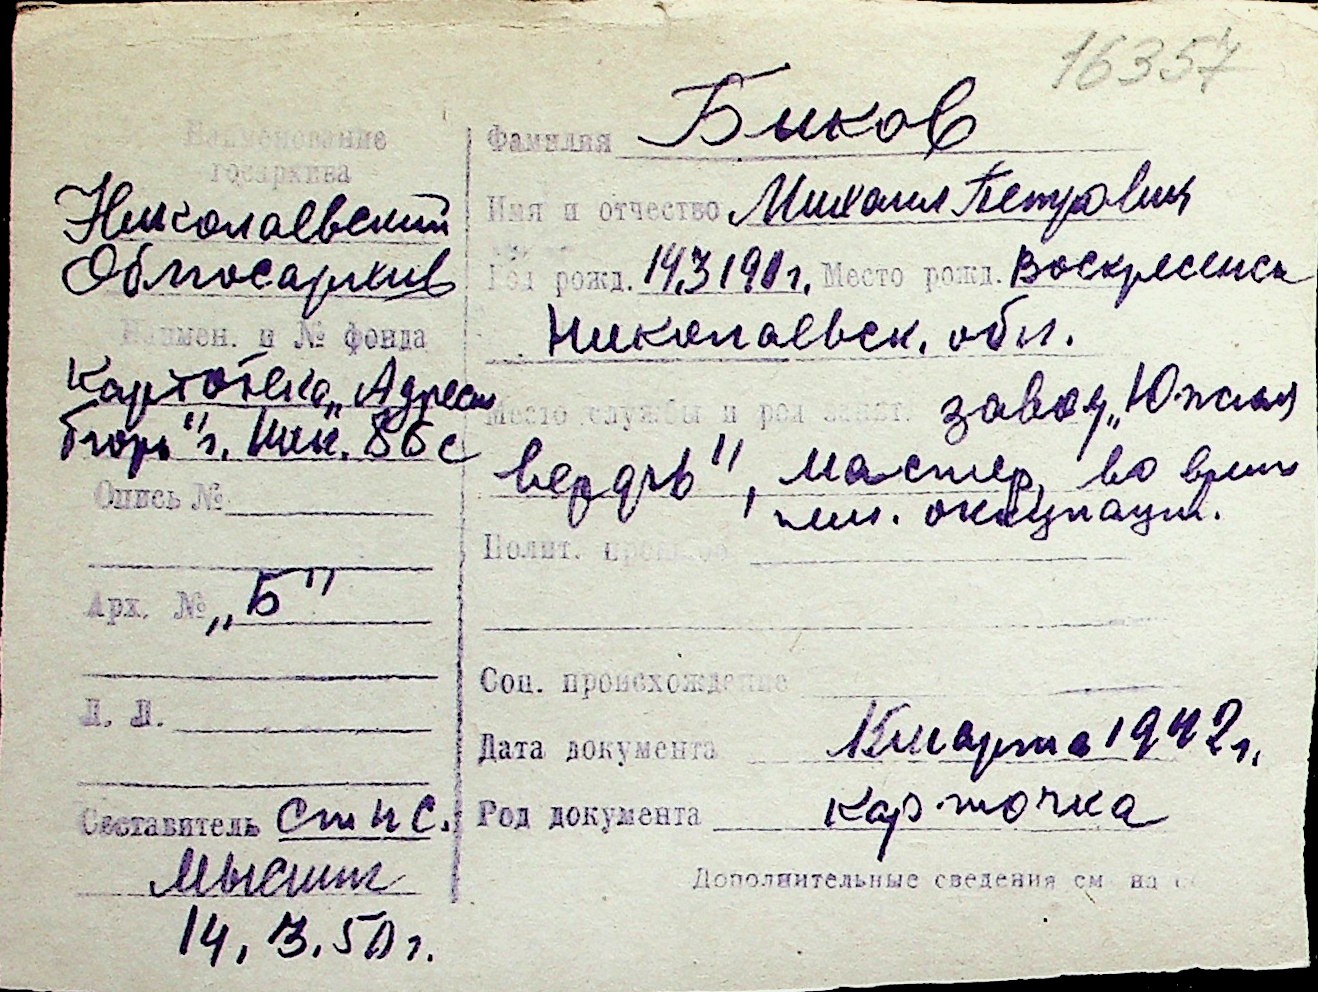 16357
Наименование
госархива
Николаевский
Облгосархив
Наимен. и № фонда
Картотека „Адресн
бюро" г. Ник. ББС
Опись №
Арх. № „Б"
Л. Л.
Составитель Ст н с.
14. 3. 50 г.
Фамилия Биков
Имя и отчество Михаил Петрович
Год рожд. 14.3 1901 г. Место рожд. Воскресенск
Николаевск. обл.
Место службы и род занят. завод „Южная
верфь", мастер, во врем
нем. оккупации.
Полит. прошлое
Соц. происхождение
Дата документа марта 1942 г.
Род документа карточка
Дополнительные сведения см на